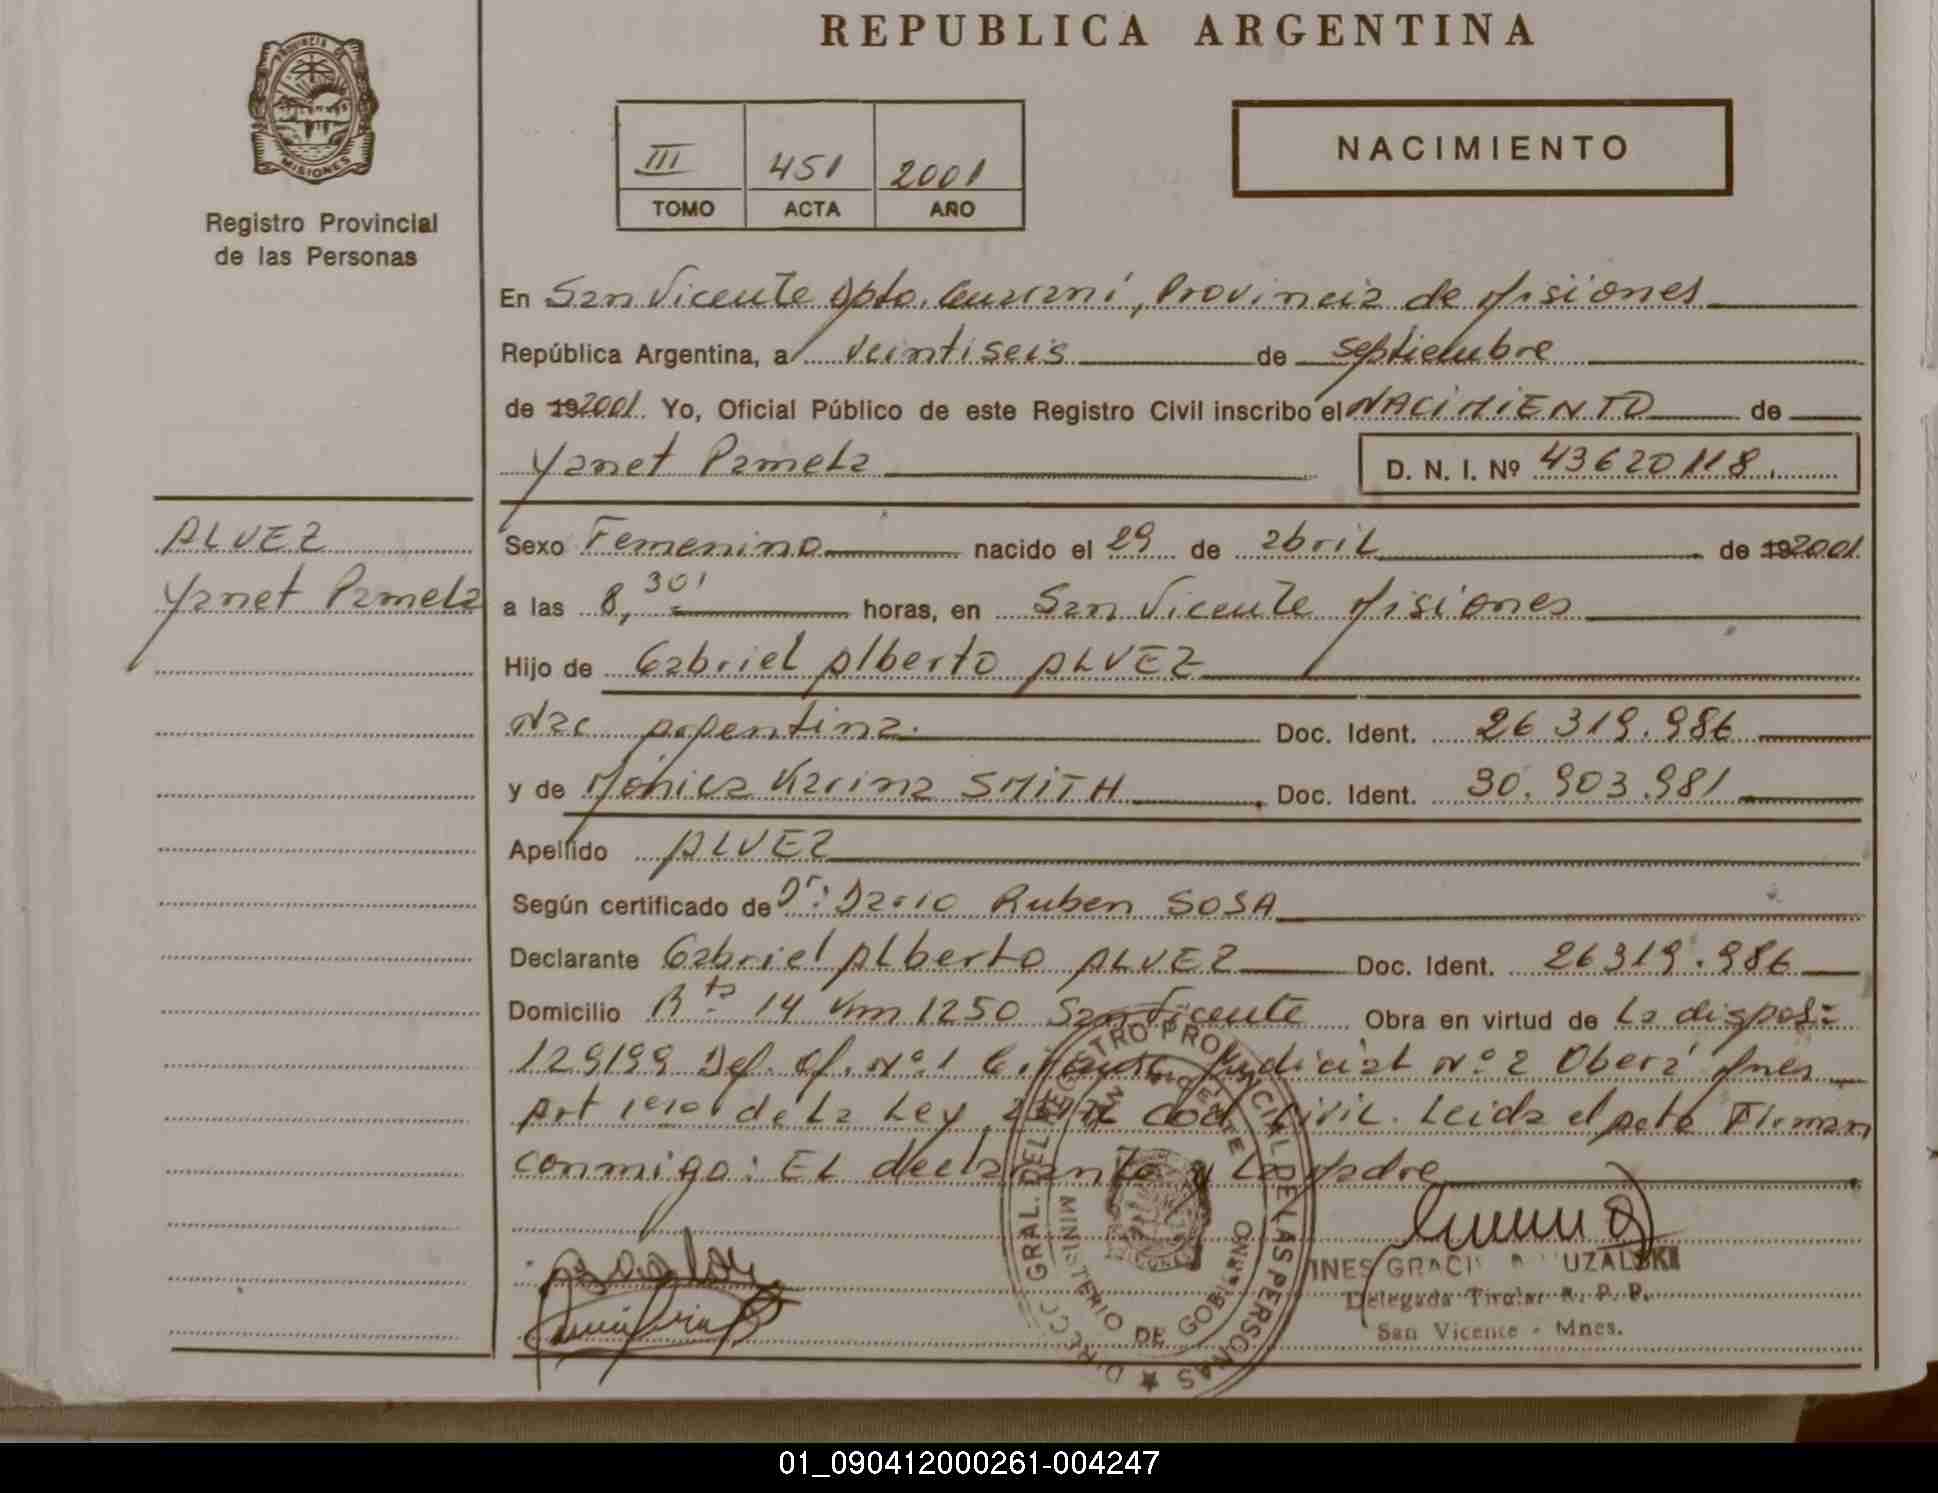 REPUBLICA ARGENTINA
PROVINCIA DE
MISIONES
Registro Provincial
de las Personas
III 451 2001
TOMO ACTA AÑO
NACIMIENTO
En San Vicente Dpto. Guaraní, Provincia de Misiones
República Argentina, a veintiseis de septiembre
de 192001. Yo, Oficial Público de este Registro Civil inscribo el NACIMIENTO de
Yanet Pamela D. N. I. Nº 43620118.
ALVEZ
Yanet Pamela
Sexo Femenino nacido el 29 de abril de 192001
a las 8,30' horas, en San Vicente Misiones
Hijo de Gabriel Alberto ALVEZ
Nac Argentina. Doc. Ident. 26 319.986
y de Mónica Karina SMITH Doc. Ident. 30.903.981
Apellido ALVEZ
Según certificado de Dr: Dario Ruben SOSA
Declarante Gabriel Alberto ALVEZ Doc. Ident. 26319.986
Domicilio Rta 14 Km 1250 San Vicente Obra en virtud de La dispos:
129199 Def. Of. Nº 1 Judicial Nº 2 Oberá Mnes
Art 1ero de La Ley Cod Civil. Leida el Acta Firman
conmigo: EL declarante y La Madre
DIRECC. GRAL. DEL REGISTRO PROVINCIAL DE LAS PERSONAS
MINISTERIO DE GOBIERNO
SAN VICENTE
INES GRACI UZALSKI
Delegada Titular R. P. P.
San Vicente - Mnes.
01_090412000261-004247